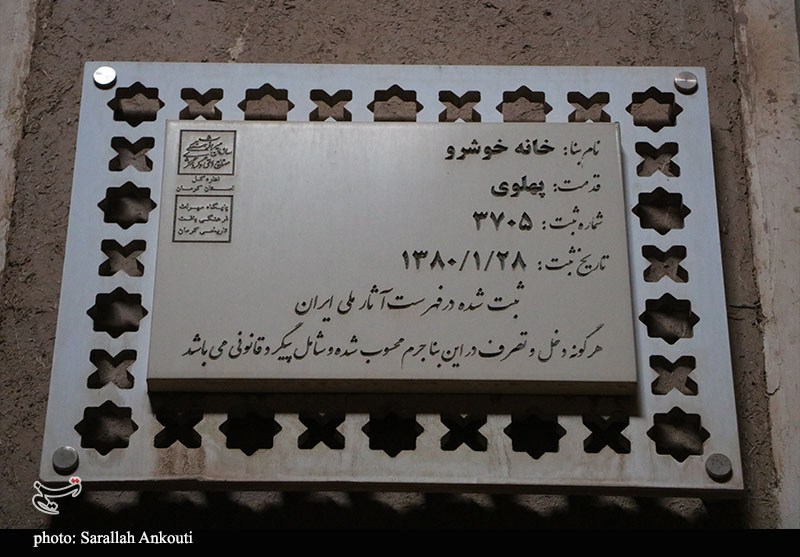 نام بنا: خانه خوشرو
قدمت: پهلوی
شماره ثبت: ۳۷۰۵
تاریخ ثبت: ۱۳۸۰/۱/۲۸
ثبت شده در فهرست آثار ملی ایران
هرگونه دخل و تصرف در این بنا جرم محسوب شده و شامل پیگرد قانونی می باشد
اداره کل
استان کرمان
پایگاه میراث
فرهنگی بافت
تاریخی کرمان
تسنیم
photo: Sarallah Ankouti